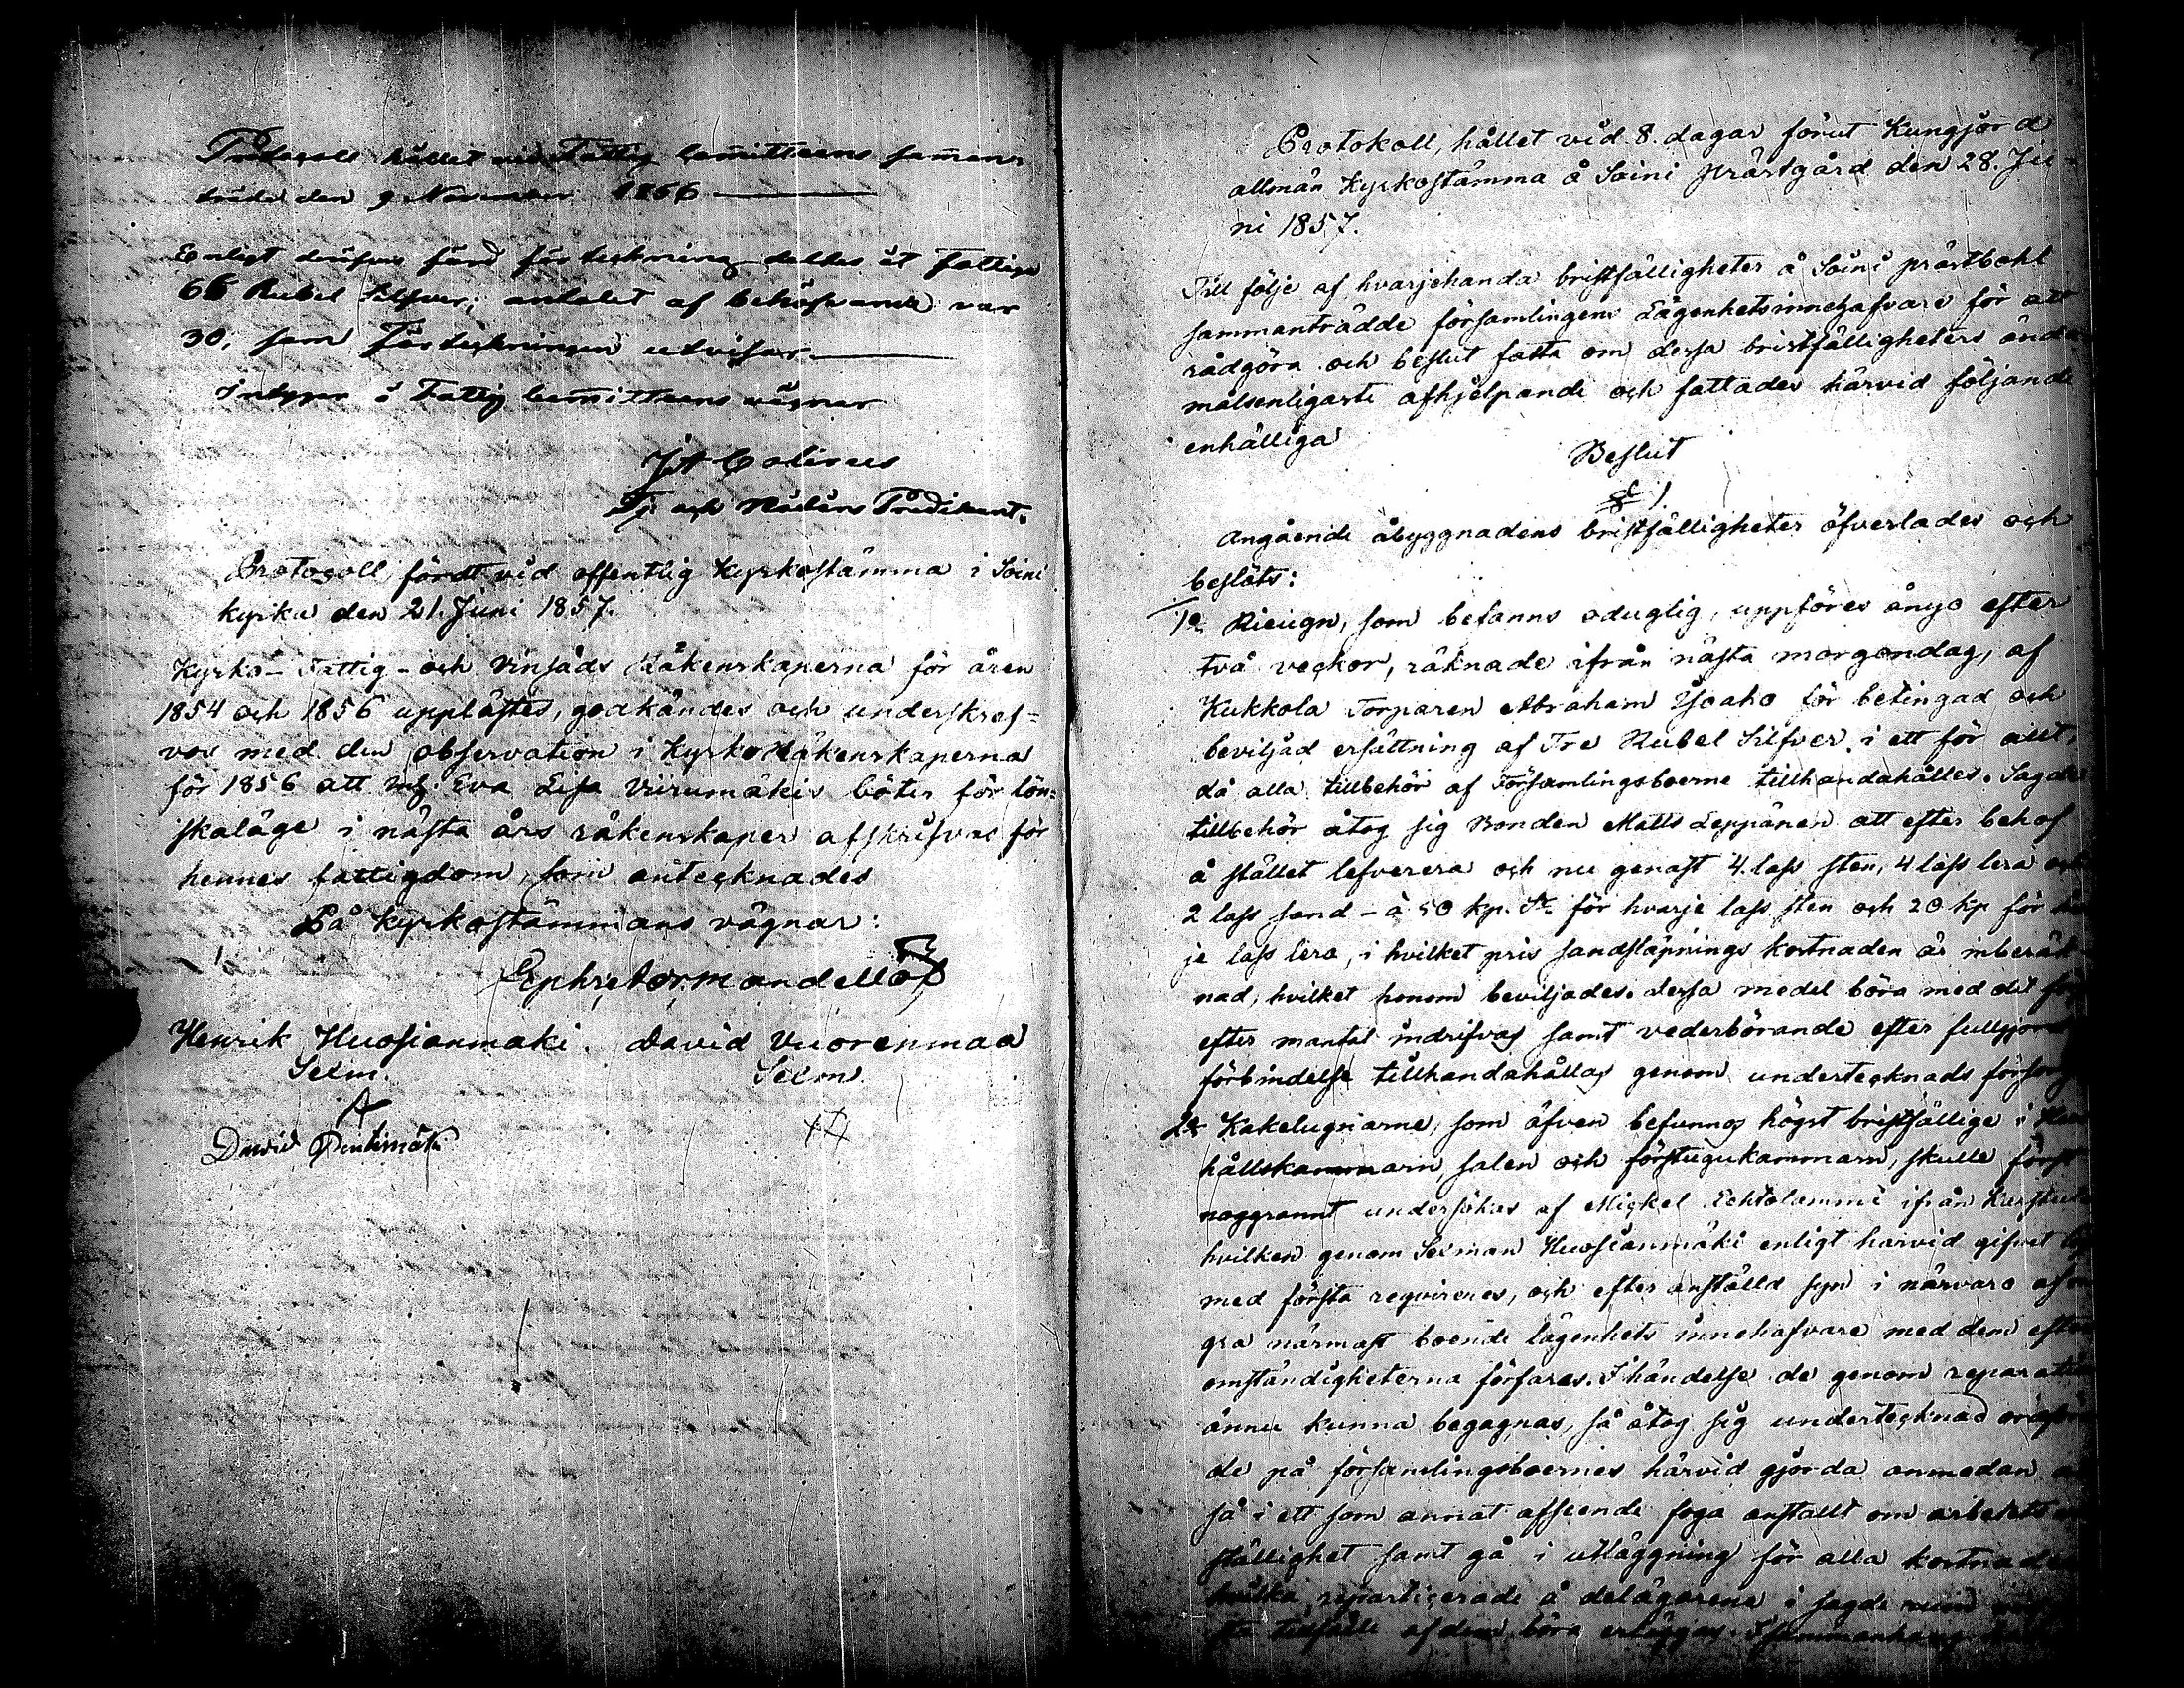 Protocoll hållet vid Fattig Com̄itteens sam̄an-
träde den 9 November 1856
Enligt deröfver förd förteckning deltes åt Fattiga
66 Rubel Silfver; antalet af behöfvande var
30, som Förteckningen utvisar
Intygar å Fattig Com̄itteens vägnar
J A Calenius
Tj. och Nådårs Predikant.
Protocoll, fördt vid offentlig Kyrkostämma i Soini
kyrka den 21. Juni 1857.
Kyrko- Fattig- och Vinsäds Räkenskaperna för åren
1854 och 1856 upplästes, godkändes och underskref=
vos med den observation i Kyrko Räkenskaperna
för 1856 att Eva Lisa Viirumäkis böter för lön=
skaläge i nästa års räkenskaper afskrifvas för
hennes fattigdom, som antecknades
På kyrkostämmans vägnar:
Henrik Huosianmaki. David Vuorenmaa
Sexm. Sexm.
David Pentimäki
Protokoll, hållet vid 8. dagar förut Kungjord
allmän Kyrkostämma å Soini Prästgård den 28. Ju-
ni 1857.
Till följe af hvarjehanda bristfälligheter å Soini prästbohl
sammanträdde församlingens Lägenhetsinnehafvare för att
rådgöra och beslut fatta om dessa bristfälligheters ända
målsenligaste afhjelpande och fattades härvid följande
enhälliga
Beslut
§ 1.
Angående åbyggnadens bristfälligheter öfverlades och
beslöts:
1o Rieugn, som befanns oduglig, uppföres ånyo efter
två veckor, räknade ifrån nästa morgondag, af
Kukkola Torparen Abraham Ysaho för betingad och
beviljad ersättning af Tre Rubel Silfver i ett för allt,
då alla tillbehör af Församlingsboerne tillhandahålles. Sagde
tillbehör åtog sig Bonden Matts Leppänen att efter behof
å stället lefverera och nu genast 4. lass sten, 4 lass lera och
2 lass sand - à 50 kp. Sr. för hvarje lass sten och 20 kp för
je lass lera, i hvilket pris sandsläpnings kostnaden är inberäk
nad, hvilket honom beviljades. Dessa medel böra med det
efter mantal indrifvas samt vederbörande efter fullgjord
förbindelse tillhandahållas genom undertecknads försorg
2o Kakelugnarne, som äfven befunnos högst bristfällige i
hållskammarn, salen och förstugukammarn, skulle först
noggrannt undersökas af Mickel Lehtolammi ifrån
hvilken genom Sexman Huosianmäki enligt härvid gifvet
med första reqvireres, och efter anställd syn i närvaro af
gra närmast boende lägenhets innehafvare med dem efter
omständigheterna förfares. I händelse de genom reparation
ännu kunna begagnas, så åtog sig undertecknad
de på församlingsboernes härvid gjorda anmodan
så i ett som annat afseende foga anstallt om arbetets
ställighet samt gå i utläggning för alla kostnader
hvilka reparticerade å delägarene i sagde
tillfälle af dem böra erläggas.